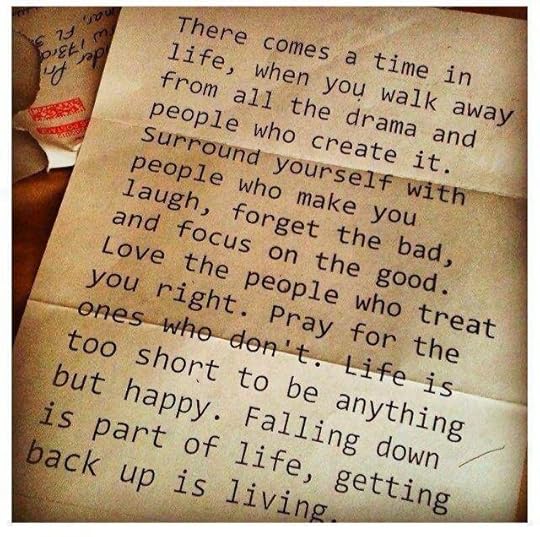 There comes a time in
life, when you walk away
from all the drama and
people who create it.
Surround yourself with
people who make you
laugh, forget the bad,
and focus on the good.
Love the people who treat
you right. Pray for the
ones who don't. Life is
too short to be anything
but happy. Falling down
is part of life, getting
back up is living.